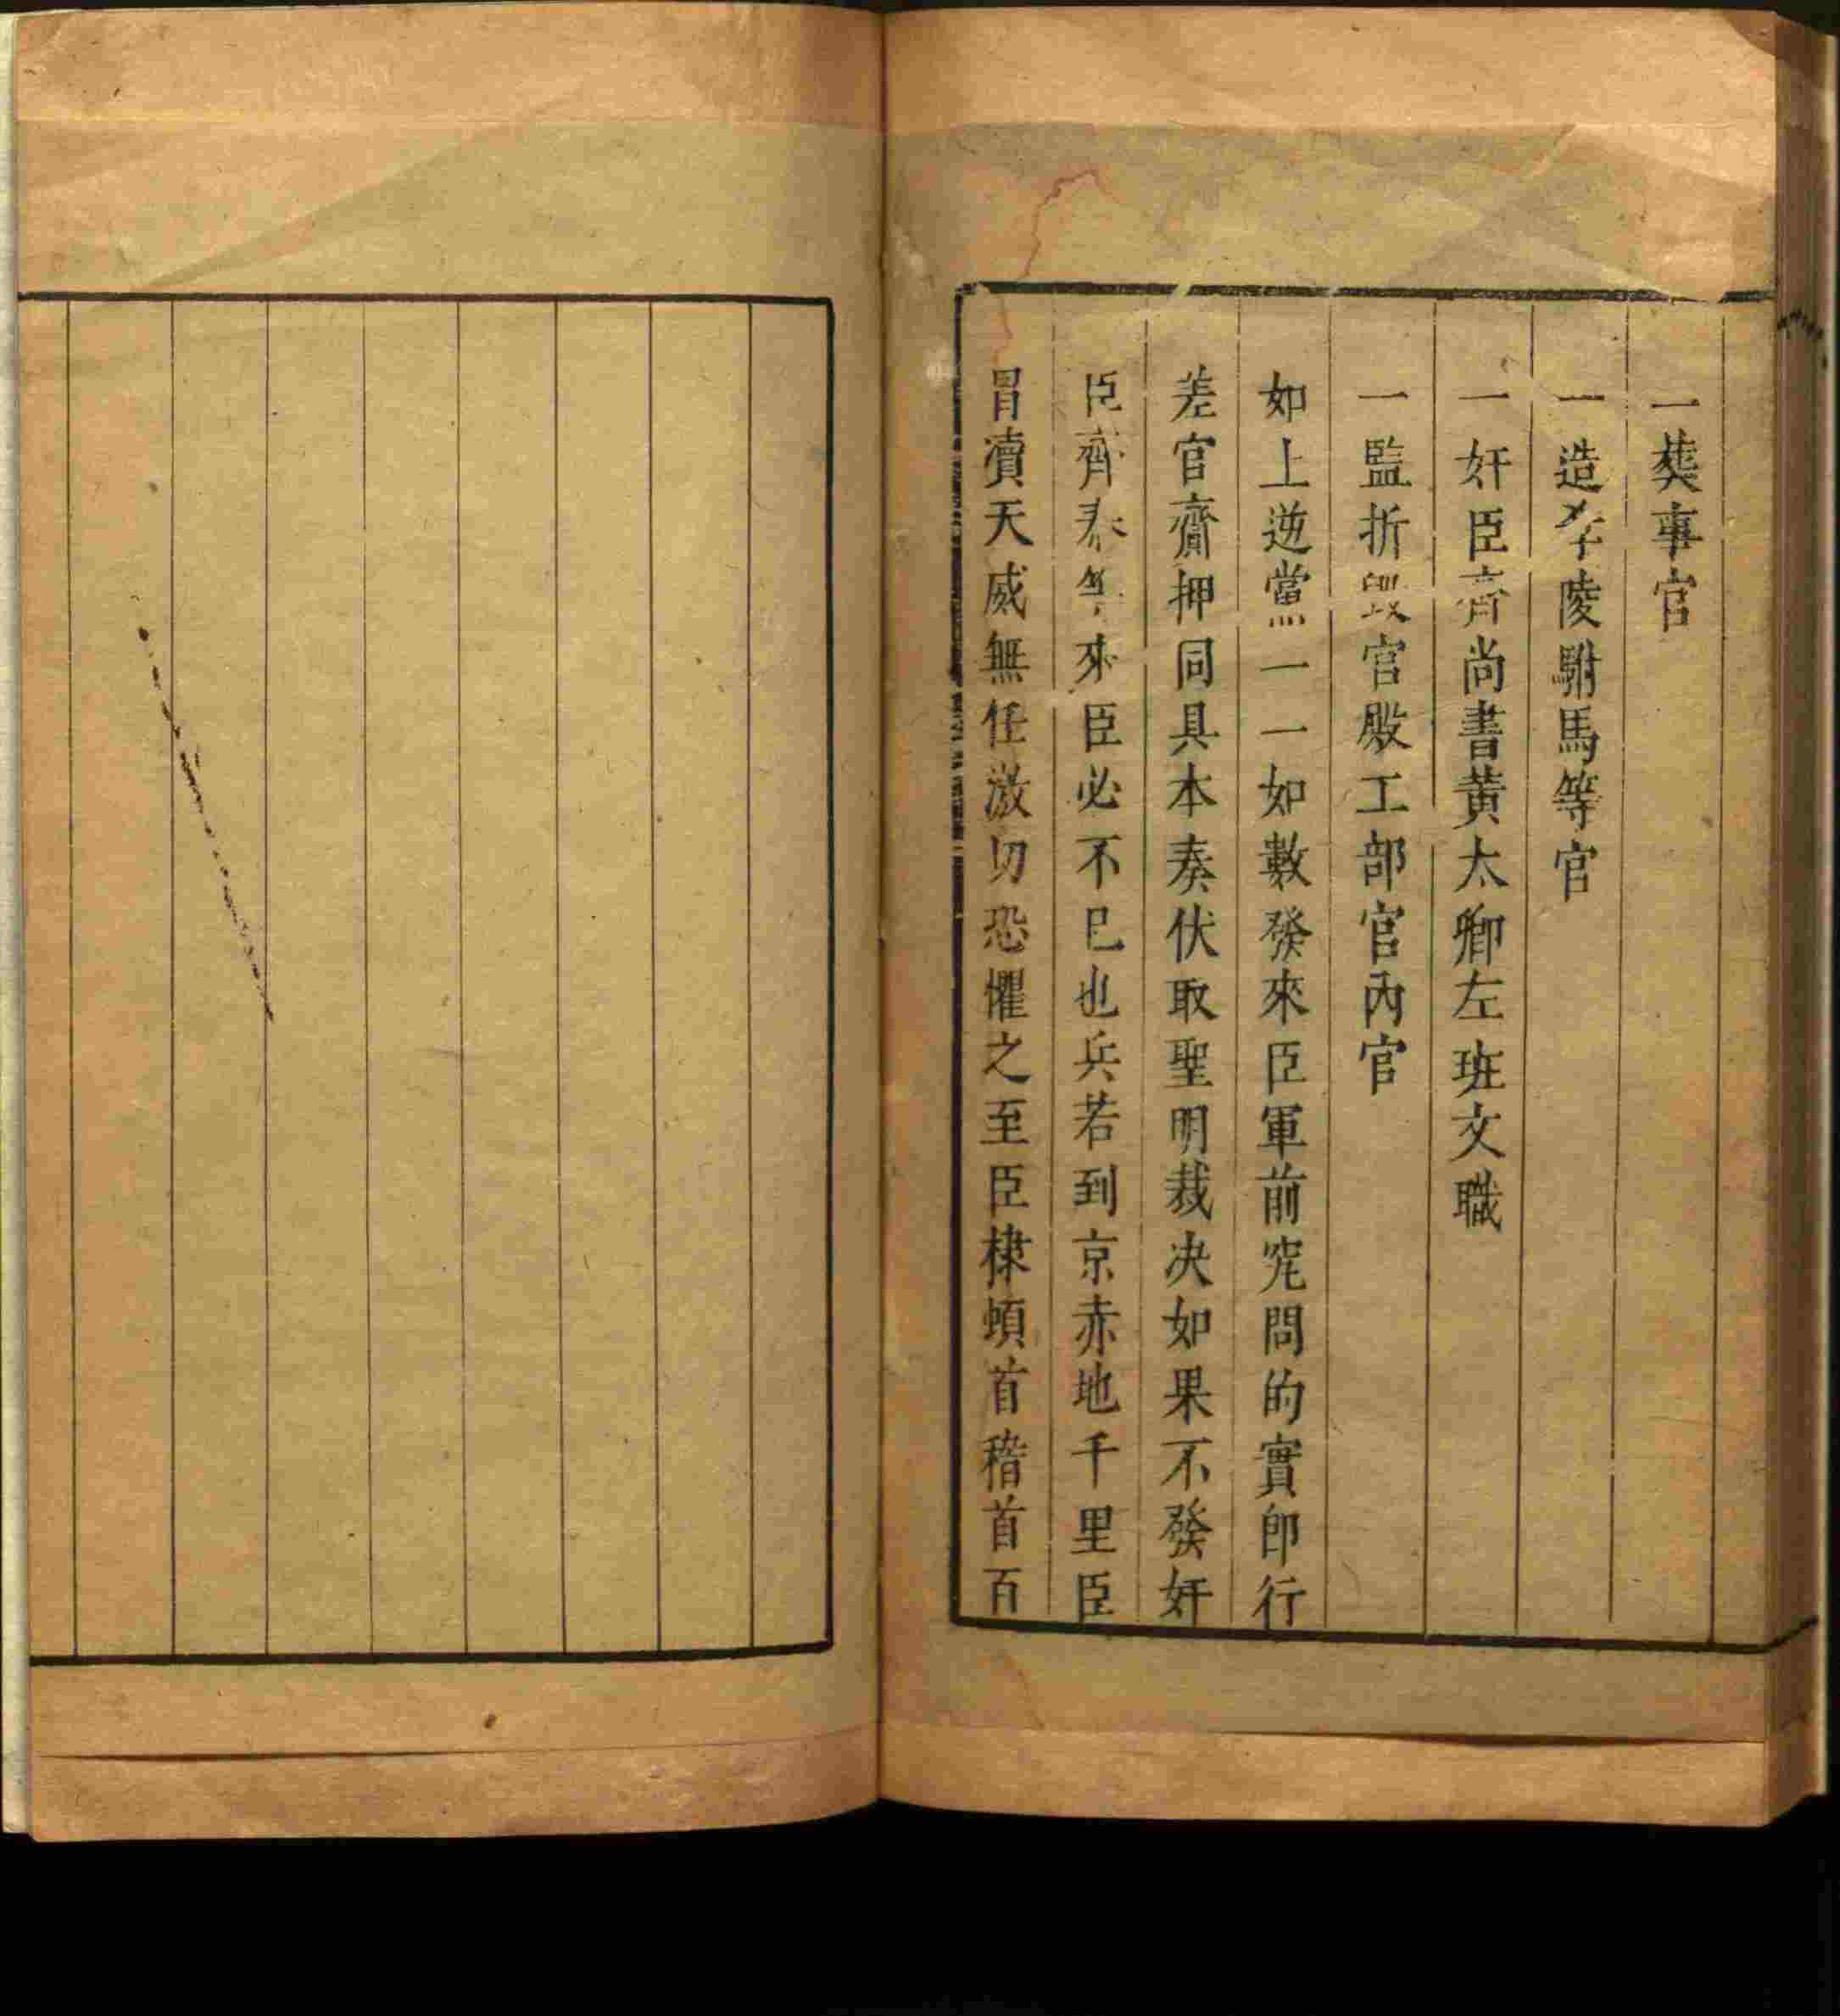 一葬事官
一造孝陵駙馬等官
一奸臣齊尚書黃太卿左班文職
一監折毀宫殿工部官內官
如上逆黨一一如數發來臣軍前究問的實卽行
差官齎押同具本奏伏取聖明裁决如果不發奸
臣齊泰等來臣必不已也兵若到京赤地千里臣
冒瀆天威無任激切恐懼之至臣棣頓首稽首百